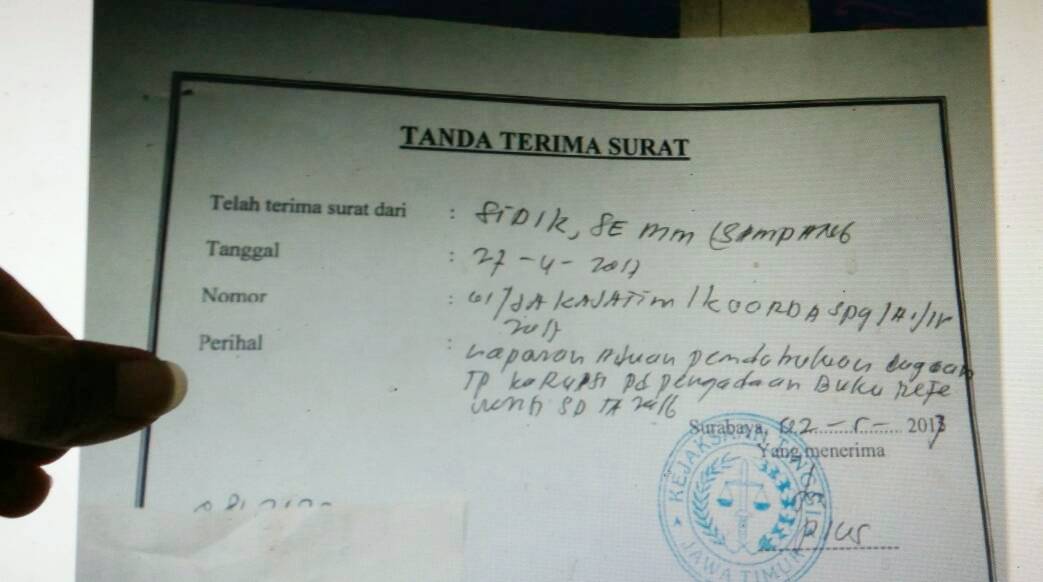 TANDA TERIMA SURAT
Telah terima surat dari : SIDIK, SE MM (SAMPANG
Tanggal : 27-4-2017
Nomor : KOORDA SPG
2017
Perihal : Laporan Aduan pendahuluan dugaan
TP KORUPSI pd pengadaan Buku Refe
SD TA 2016
Surabaya, 02 - 5 - 2017
Yang menerima
KEJAKSAAN TINGGI
JAWA TIMUR